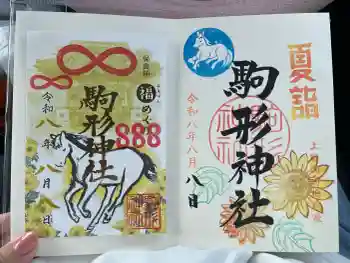 夏詣
駒形神社
令和八年八月八日
福めぐり
駒形神社
888
令和八年八月八日